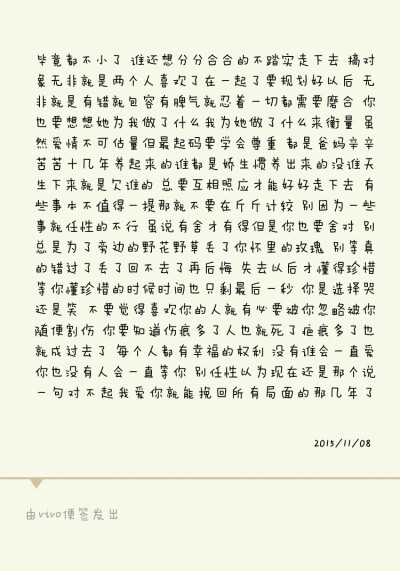 毕竟都不小了 谁还想分分合合的不踏实走下去 搞对
象无非就是两个人喜欢了在一起了要规划好以后 无
非就是有错就包容有脾气就忍着一切都需要磨合 你
也要想想她为我做了什么我为她做了什么来衡量 虽
然爱情不可估量但最起码要学会尊重 都是爸妈辛辛
苦苦十几年养起来的谁都是娇生惯养出来的没谁天
生下来就是欠谁的 总要互相照应才能好好走下去 有
些事本不值得一提那就不要在斤斤计较 别因为一些
事就任性的不行 虽说有舍才有得但是你也要舍对 别
总是为了旁边的野花野草丢了你怀里的玫瑰 别等真
的错过了丢了回不去了再后悔 失去以后才懂得珍惜
等你懂珍惜的时候时间也只剩最后一秒 你是选择哭
还是笑 不要觉得喜欢你的人就有必要被你忽略被你
随便割伤 你要知道伤痕多了人也就死了疤痕多了也
就成过去了 每个人都有幸福的权利 没有谁会一直爱
你也没有人会一直等你 别任性以为现在还是那个说
一句对不起我爱你就能挽回所有局面的那几年了
2015/11/08
由vivo便签发出